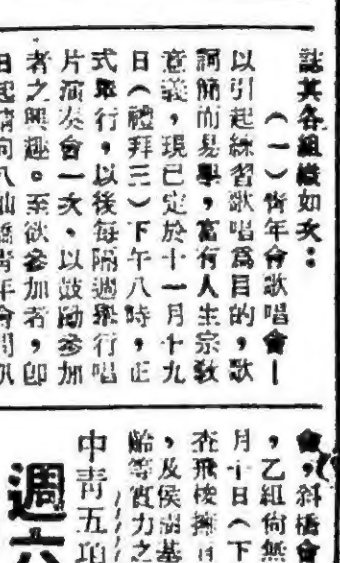 誌其各組織如次：
（一）青年會歌唱會—
以引起練習歌唱爲目的，歌
詞簡而易學，富有人生宗敎
意義，現已定於十一月十九
日（禮拜三）下午八時，正
式舉行，以後每隔週舉行唱
片演奏會一次、以鼓勵參加
者之興趣。至欲參加者，卽
日起請向八仙橋靑年會
會，斜橋會
，乙組尙無
月十日（下
，及侯
中靑五項
週六